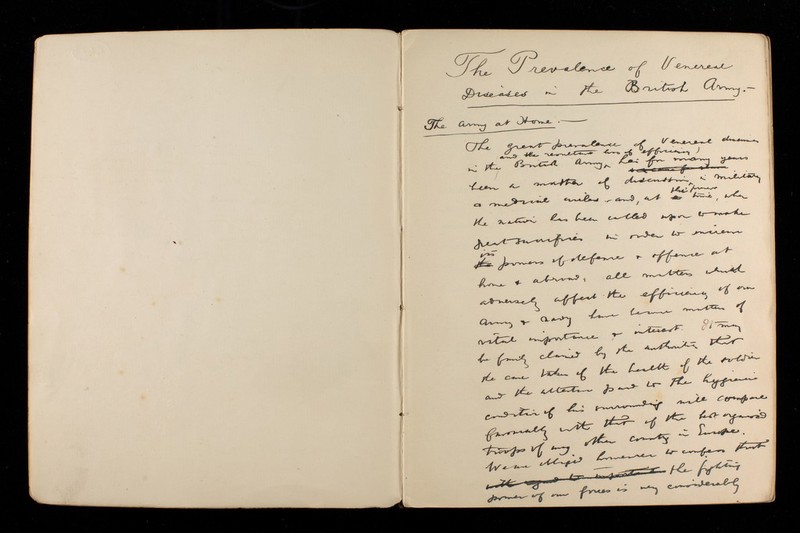 The Prevalence of Venereal
Diseases in the British Army.—
The Army at Home.—
The great prevalence of Venereal diseases
and the resulting loss of efficiency)
in the British Army, has for many years
been a matter of discussion in military
& medical circles - and, at this time, when
the nation has been called upon to make
great sacrifices in order to increase
its
the powers of defence & offence at
home & abroad, all matters which
adversely affect the efficiency of our
Army & Navy have become matters of
vital importance & interest. It may
be fairly claimed by the authorities that
the care taken of the health of the soldier
and the attention paid to the hygienic
condition of his surroundings will compare
favourably with that of the best organised
troops of any other country in Europe.
We are obliged however to confess that
with regard to the fighting
power of our forces is very considerably